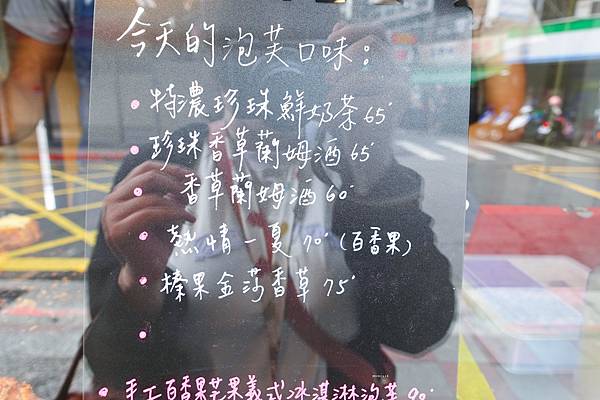 今天的泡芙口味：
• 特濃珍珠鮮奶茶 65
• 珍珠香草蘭姆酒 65
• 香草蘭姆酒 60
• 熱情一夏 70 (百香果)
• 榛果金莎香草 75
•
• 手工百香果芒果義式冰淇淋泡芙 90